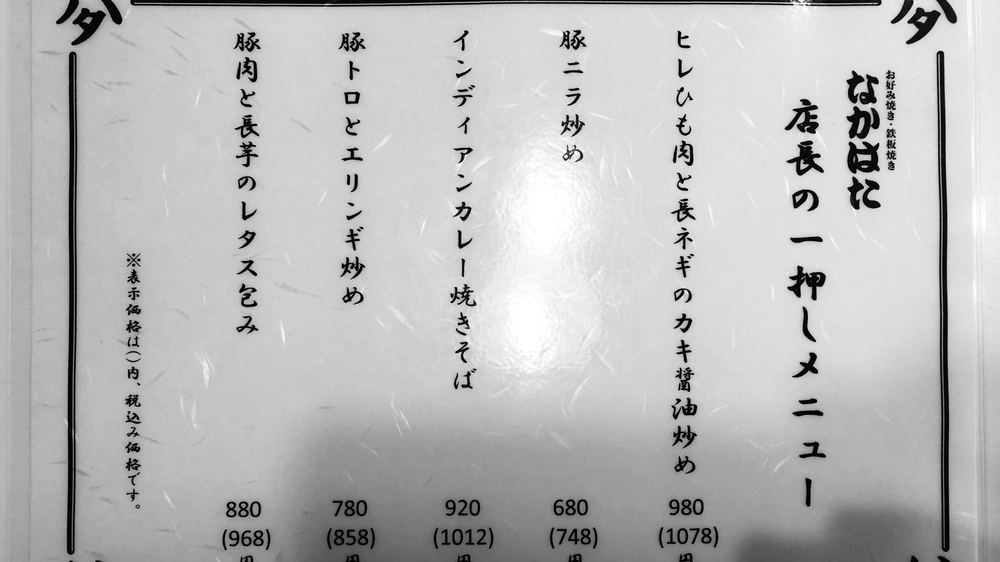 お好み焼き・鉄板焼き
なかはた
店長の一押しメニュー
ヒレひも肉と長ネギのカキ醤油炒め
980
(1078)
円
豚ニラ炒め
680
(748)
円
インディアンカレー焼きそば
920
(1012)
円
豚トロとエリンギ炒め
780
(858)
円
豚肉と長芋のレタス包み
880
(968)
円
※表示価格は()内、税込み価格です。